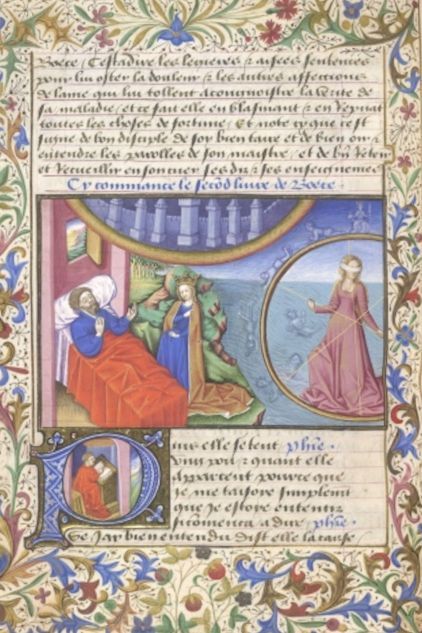 Boece / Cestadire les legieres & aspres sentences
pour lui oster la douleur & les autres affections
de lame qui lui tollent a congnoistre la verite de
sa maladie / et ce fait elle en blasmant & en
toutes les choses de fortune / Et note cy que cest
signe de bon disciple de soy bien taire et de bien
entendre les parolles de son maistre / et de
et recueillir en son cuer ses & ses enseignemens
Cy commance le secod livre de Boece
Puis elle se teut phie
ung pou & quant elle
appercent pource que
je me taisoye simplemt
que je estoye ententif
commenca a dire phie
Se jay bien entendu dist elle la cause